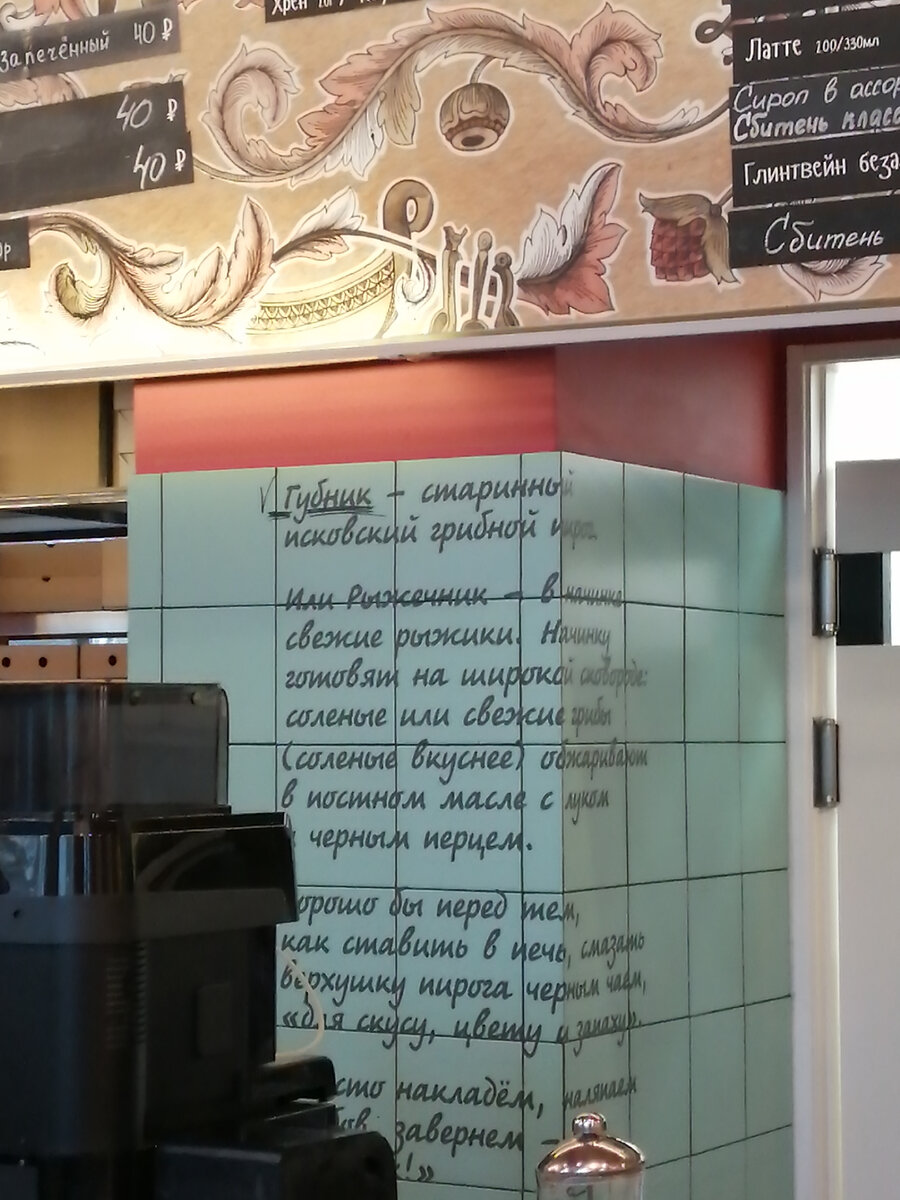 Хрен
запечённый 40 ₽
40 ₽
40 ₽
Латте 100/330мл
Сироп в ассор
Сбитень класс
Глинтвейн беза
Сбитень
Губник – старинный
псковский грибной пирог
Или Рыжечник – в начинке
свежие рыжики. Начинку
готовят на широкой сковороде:
соленые или свежие грибы
(соленые вкуснее) обжаривают
в постном масле с луком
черным перцем.
хорошо бы перед тем,
как ставить в печь, смазать
верхушку пирога черным чаем,
«для скусу, цвету и запаху».
сто накладём, наляпаем
завернем –
!»